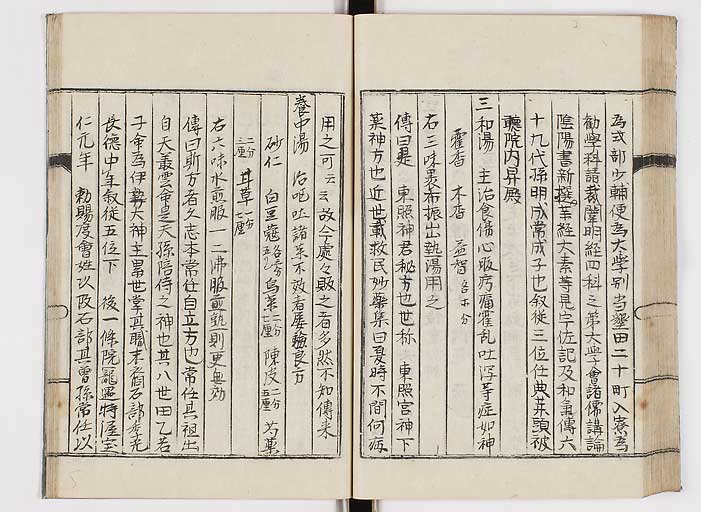 為式部少輔便為大学別当墾田二十町入寮為
勧学科請裁闡明経四科之第大学會諸儒講論
陰陽書新撰薬経大素等見宇佐記及和氣傳六
十九代孫明成常成子也叙従三位仕典薬頭被
聴院内昇殿
三和湯 主治食傷心腹疞痛霍乱吐瀉等症如神
藿香 木香 益智各等分
右三味裹布振出熱湯用之
傳曰是 東照神君秘方也世称 東照宮神下
薬神方也近世載救民妙薬集曰夏時不間何病
用之可云云故今處々敗之者多然不知傳来
養中湯 治呕吐諸薬不效者屡験良方
砂仁 白豆蔲 烏薬二分七厘 陳皮二分五厘 芍薬
二分二厘 甘草一分七厘
右六味水煎服一二沸服煎熟則更無効
傳曰斯方者久志本常仕自立方也常任其祖出
自天叢雲命是天孫陪侍之神也其八世田乙若
子命為伊勢大神主累世掌其職末裔石部
長徳中年叙従五位下 後一條院寵照特渥至
仁元年 勅賜度會姓以改石部其曽孫常任以